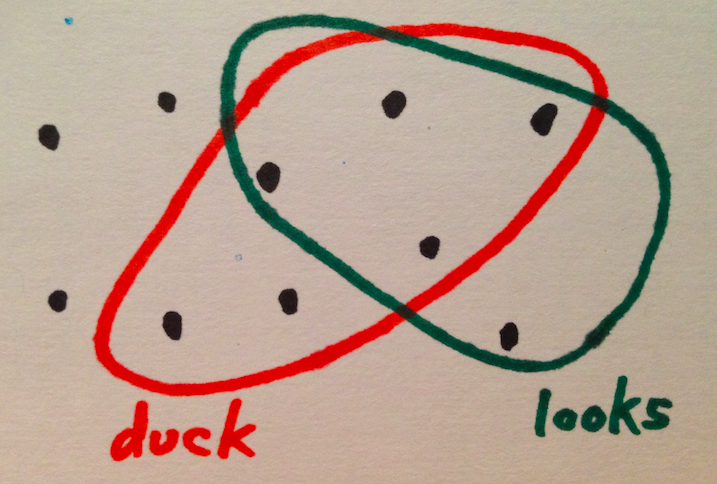 duck
looks